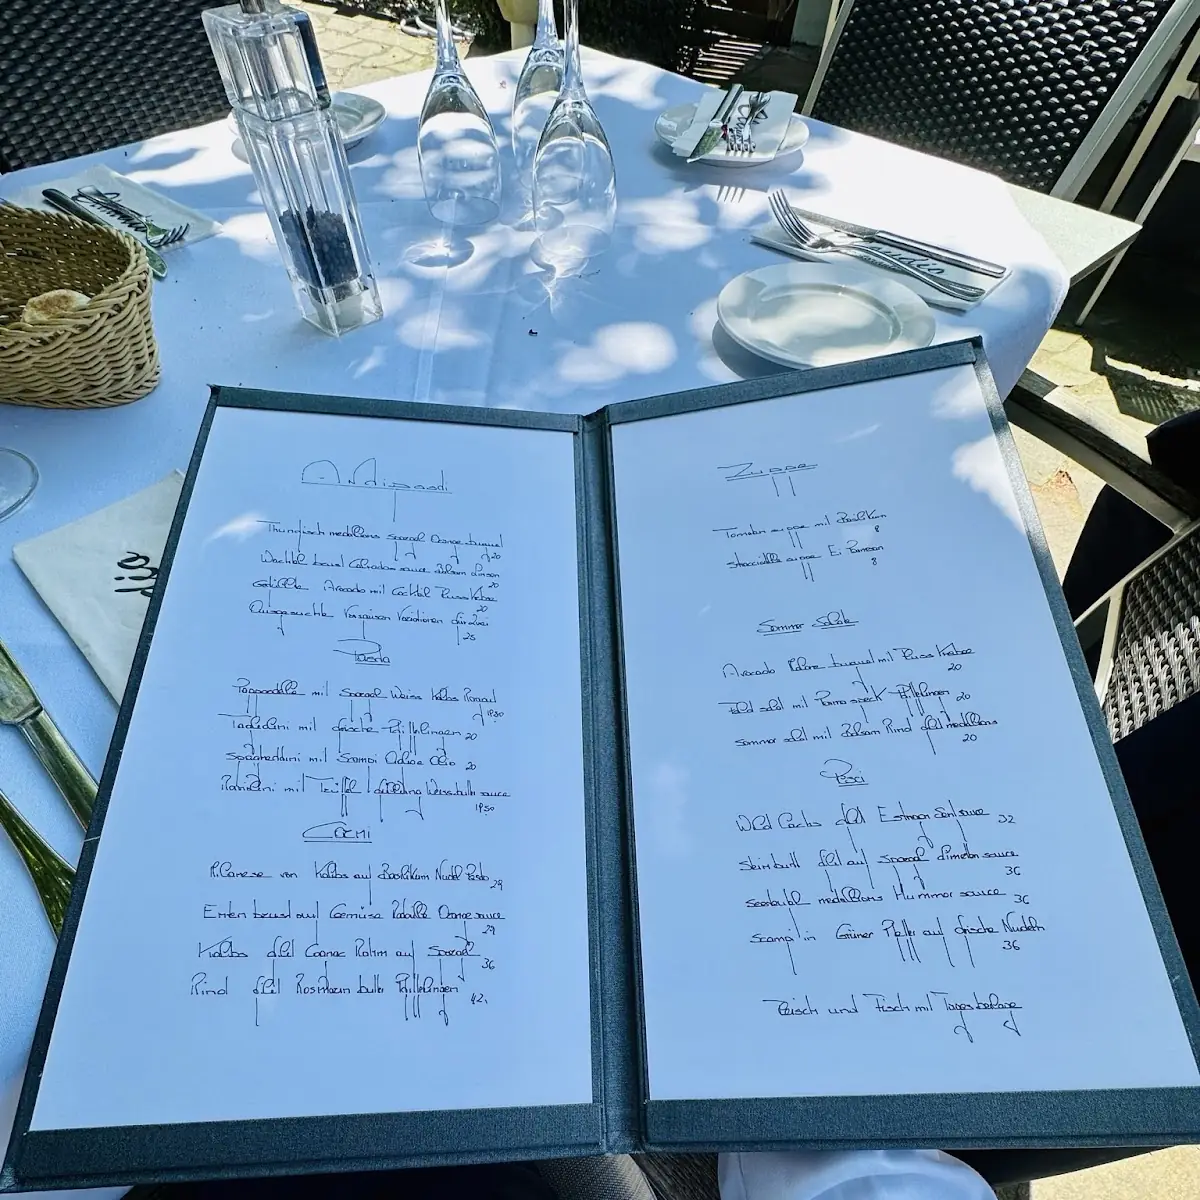 Antipasti
Thunfisch medallions Spargel Orange
20
Wachtel brust Calvados sauce Balsam Linsen
20
Gefüllte Avocado mit Cocktail Fluss Krebse
20
Ausgesuchte Vorspeisen Variationen für Zwei
25
Pasta
Pappardelle mit Spargel Weiss Kalbs Ragout
19.50
Taglialini mit frische Pfifferlingen 20
Spaghettini mit Scampi Aglio Olio 20
Raviolini mit Trüffel füllung Weissbutter sauce
19.50
Carni
Milanese von Kalbs auf Basilikum Nudel Pesto
29
Enten brust auf Gemüse Orange sauce
29
Kalbs filet Cognac Rahm auf Spargel
36
Rind filet Rosmarin butter Pfifferlingen
42.
Zuppe
Tomaten suppe mit Basilikum
8
Stracciatella suppe Ei Parmesan
8
Sommer Salate
Avocado mit Fluss Krebse
20
Feld salat mit Parma speck Pfifferlingen 20
Sommer salat mit Balsam Rind filet medallions
20
Pesci
Wild Lachs filet Estragon Senf sauce 32
Steinbutt filet auf Spargel Limetten sauce
36
Seeteufel medallions Hummer sauce 36
Scampi in Grüner Pfeffer auf frische Nudeln
36
Fleisch und Fisch mit Tages beilage